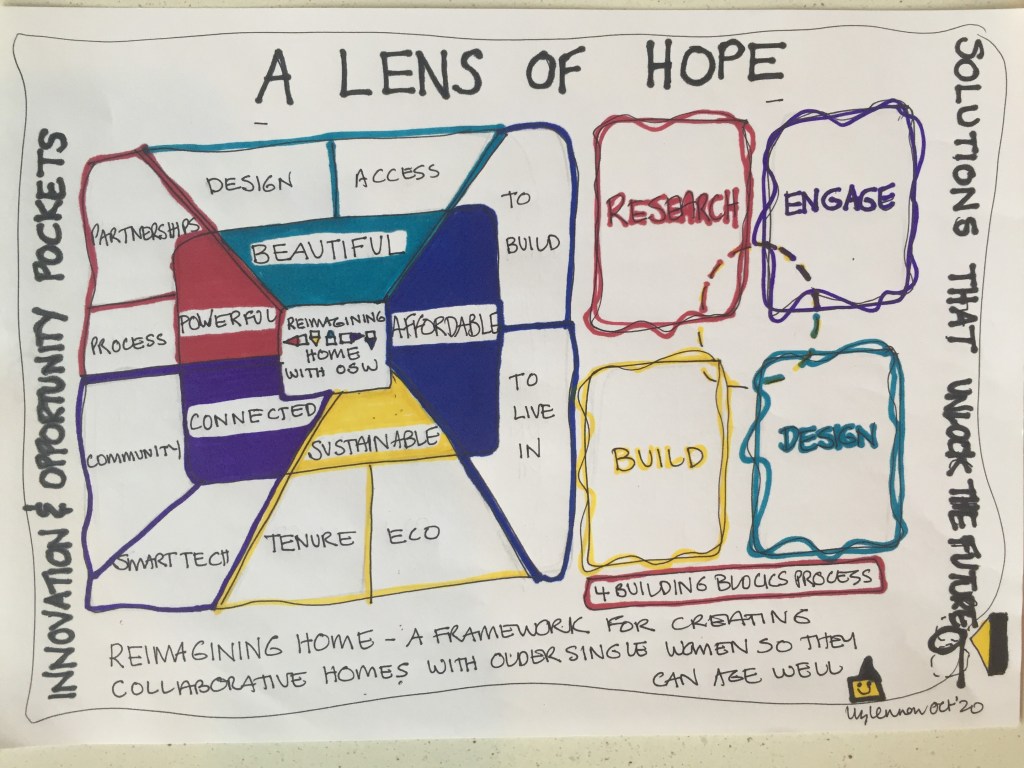 A LENS OF HOPE
INNOVATION & OPPORTUNITY POCKETS
DESIGN
ACCESS
PARTNERSHIPS
PROCESS
COMMUNITY
SMART TECH
TENURE
ECO
TO
BUILD
TO
LIVE
IN
BEAUTIFUL
POWERFUL
AFFORDABLE
CONNECTED
SUSTAINABLE
REIMAGINING
HOME
WITH OSW
RESEARCH
ENGAGE
BUILD
DESIGN
4 BUILDING BLOCKS PROCESS
SOLUTIONS THAT UNLOCK THE FUTURE
REIMAGINING HOME - A FRAMEWORK FOR CREATING
COLLABORATIVE HOMES WITH OLDER SINGLE WOMEN SO THEY
CAN AGE WELL
Oct '20